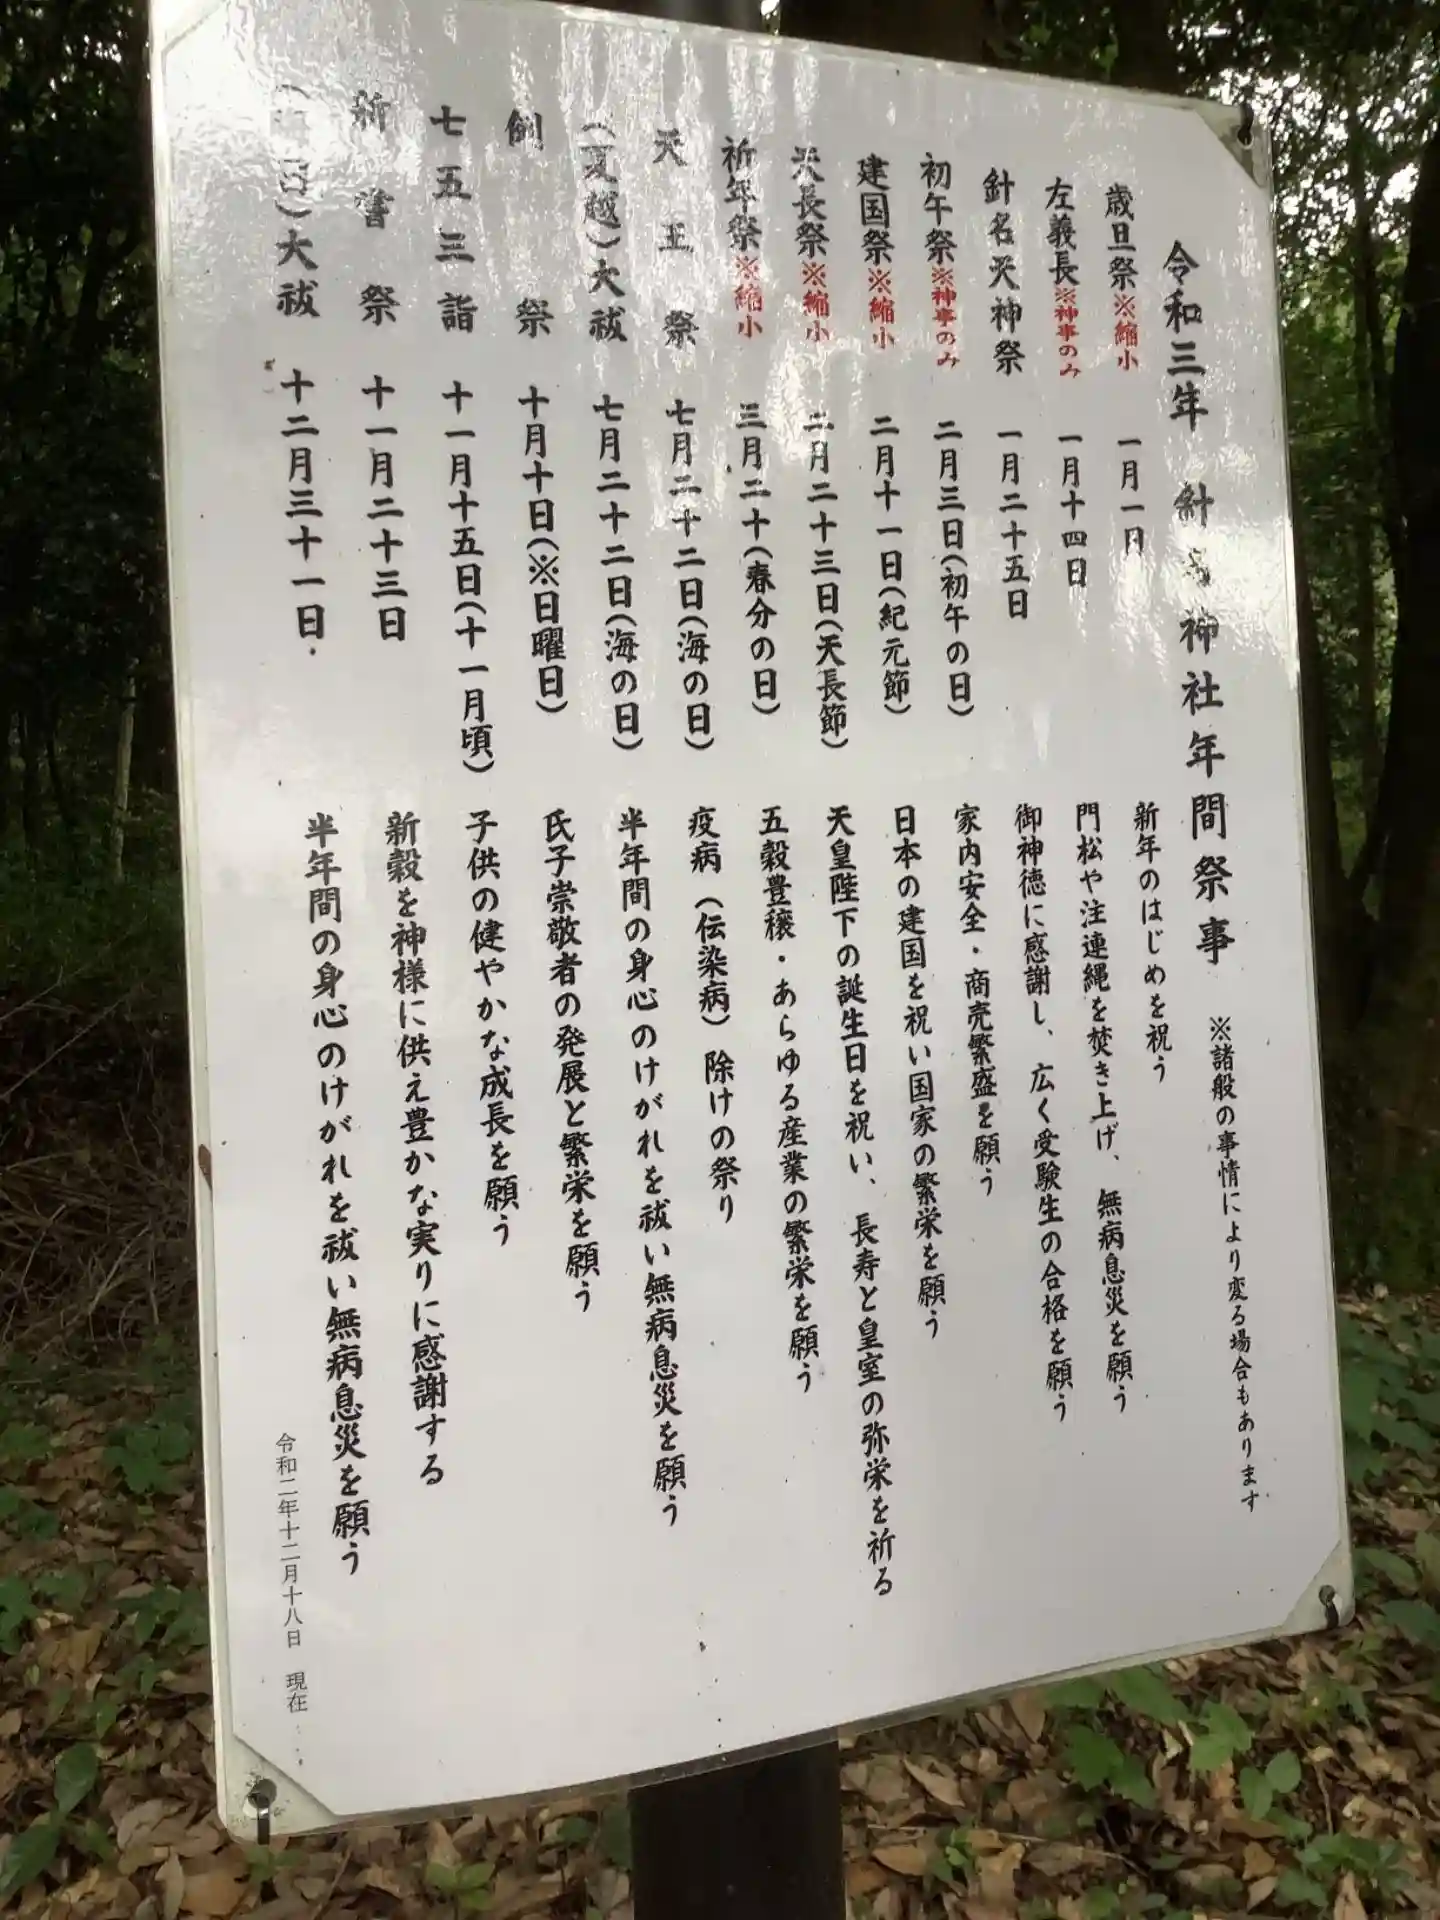 令和三年 針名神社年間祭事 ※諸般の事情により変る場合もあります
歳旦祭※縮小 一月一日 新年のはじめを祝う
左義長※神事のみ 一月十四日 門松や注連縄を焚き上げ、無病息災を願う
針名天神祭 一月二十五日 御神徳に感謝し、広く受験生の合格を願う
初午祭※神事のみ 二月三日(初午の日) 家内安全・商売繁盛を願う
建国祭※縮小 二月十一日(紀元節) 日本の建国を祝い国家の繁栄を願う
天長祭※縮小 二月二十三日(天長節) 天皇陛下の誕生日を祝い、長寿と皇室の弥栄を祈る
祈年祭※縮小 三月二十(春分の日) 五穀豊穣・あらゆる産業の繁栄を願う
天王祭 七月二十二日(海の日) 疫病(伝染病)除けの祭り
(夏越)大祓 七月二十二日(海の日) 半年間の身心のけがれを祓い無病息災を願う
例祭 十月十日(※日曜日) 氏子崇敬者の発展と繁栄を願う
七五三詣 十一月十五日(十一月頃) 子供の健やかな成長を願う
新嘗祭 十一月二十三日 新穀を神様に供え豊かな実りに感謝する
大祓 十二月三十一日 半年間の身心のけがれを祓い無病息災を願う
令和二年十二月十八日 現在